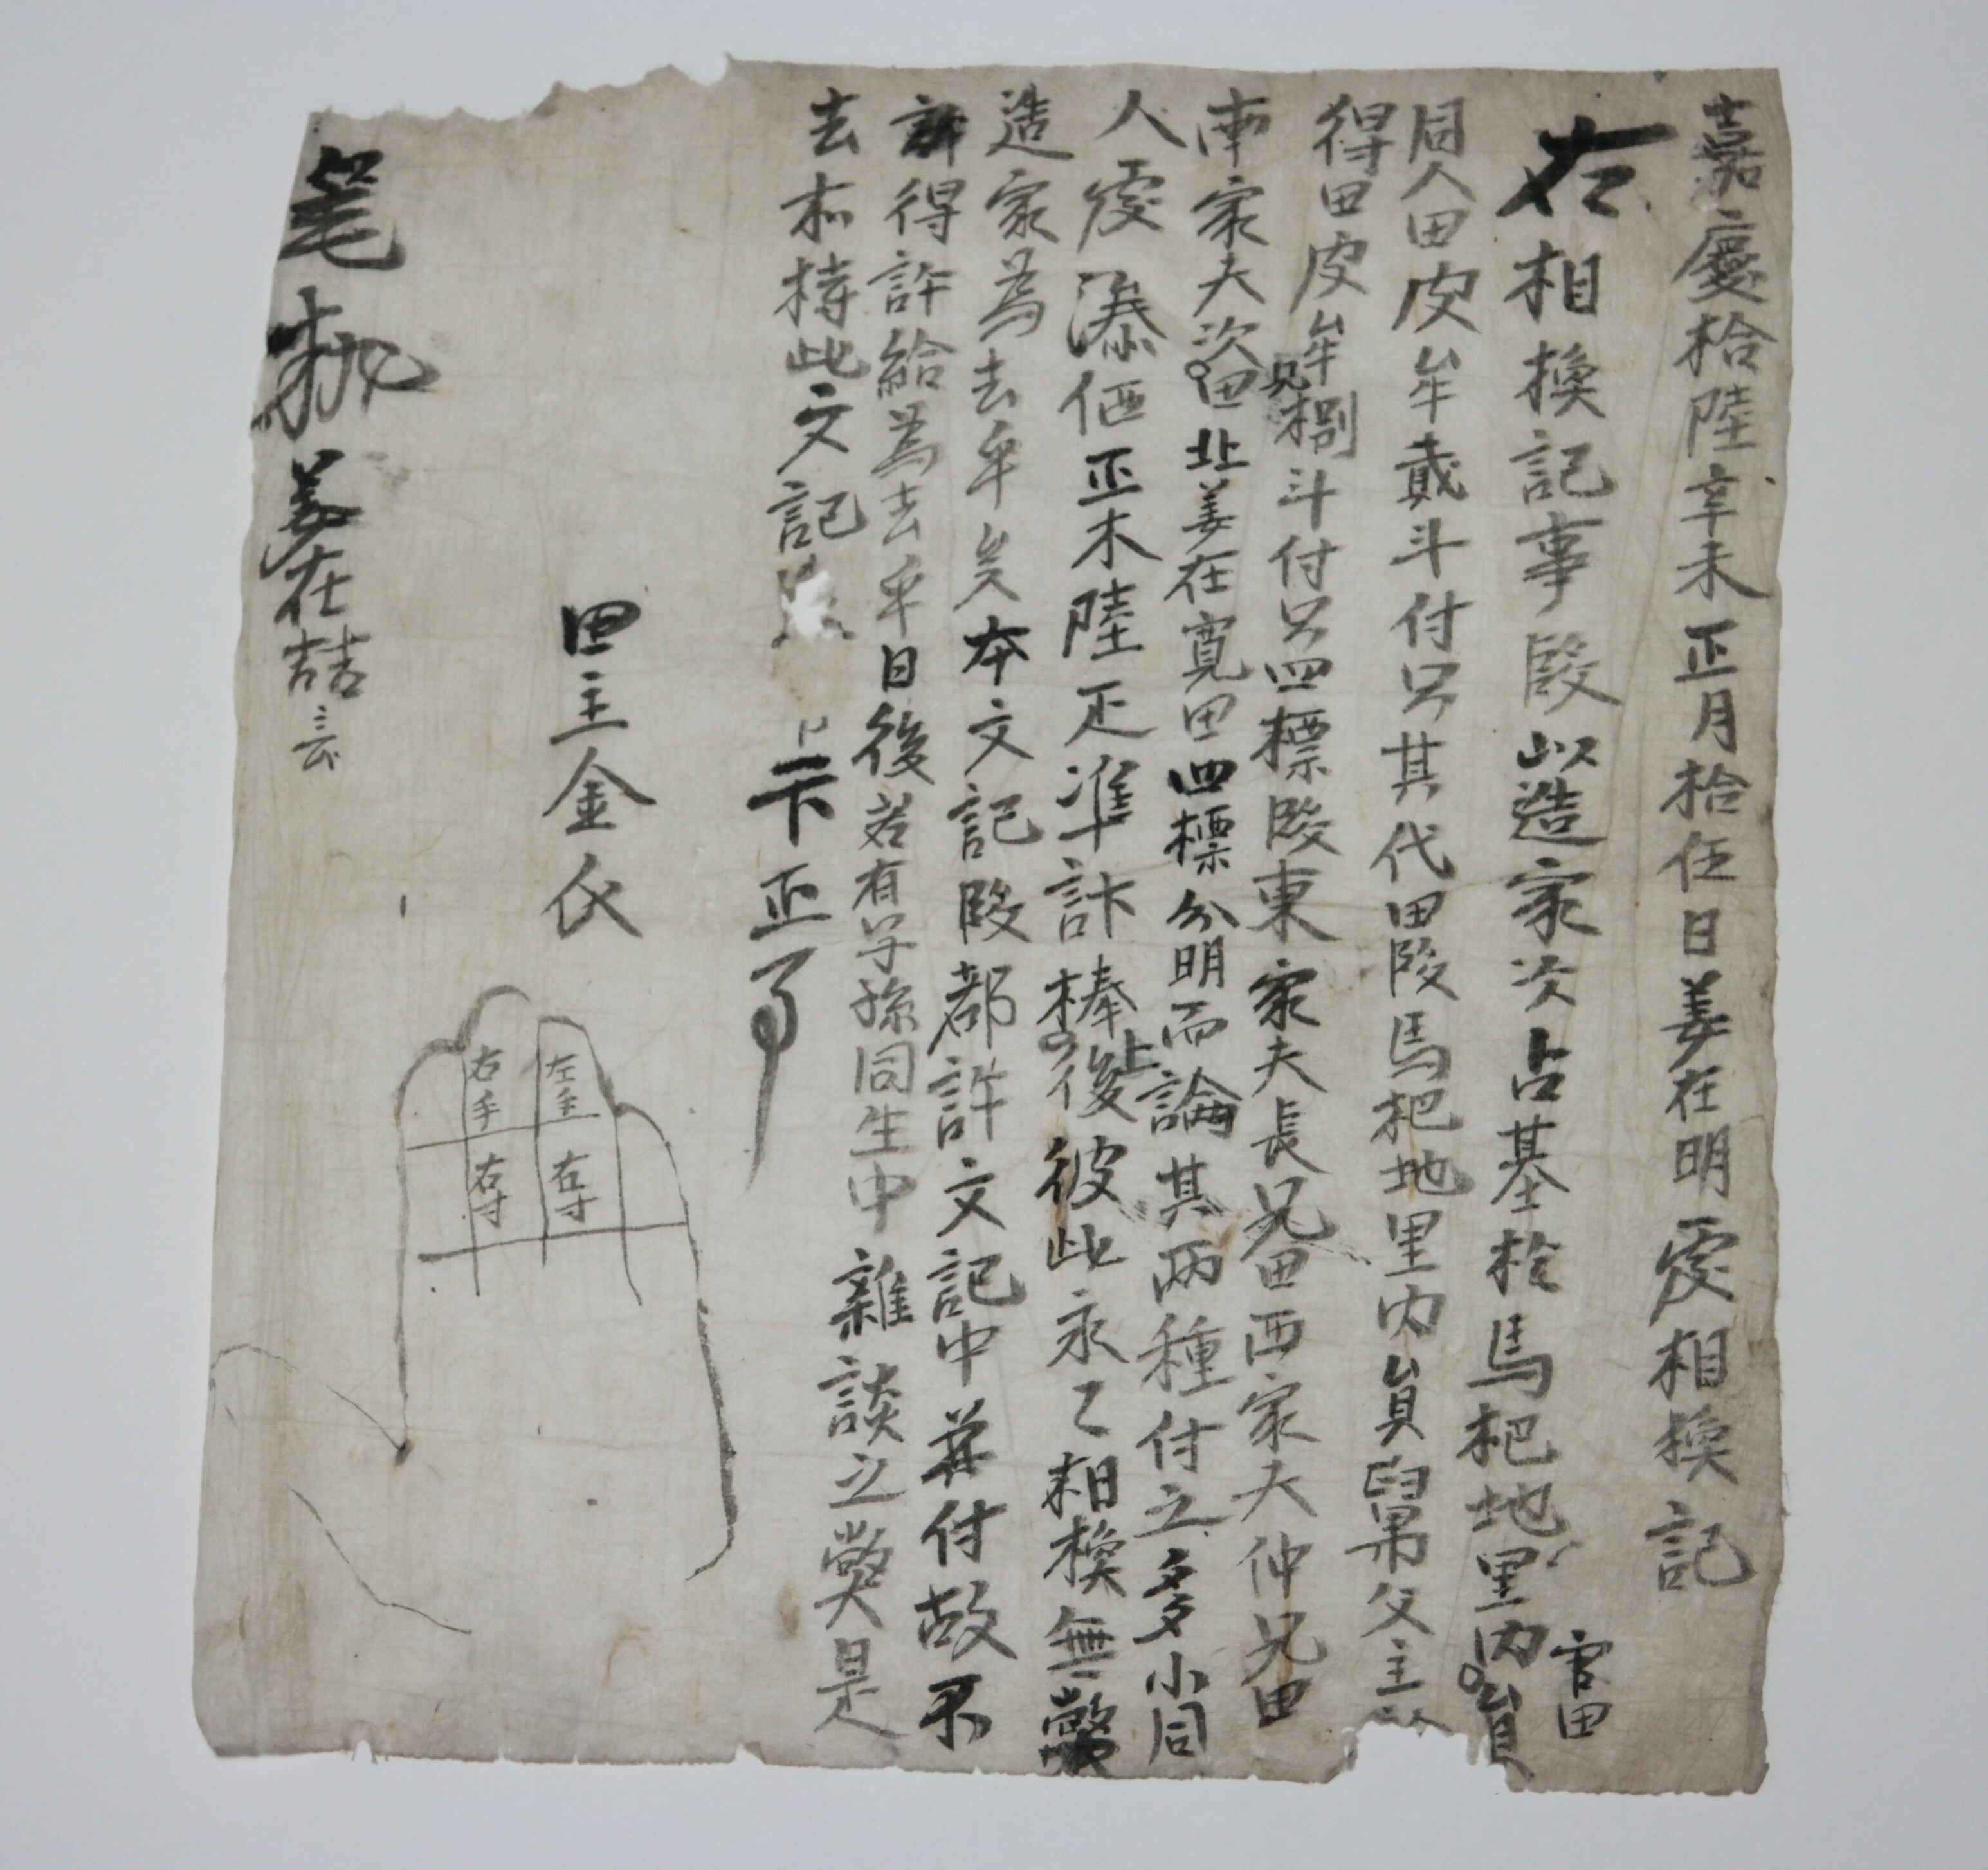 嘉慶拾陸辛未正月拾伍日姜在明處相換記
右相換記事段以造家次占基於馬杷地里內員
官田
同人田皮牟貳斗付只其代田段馬杷地里內員舅父主
得田皮牟捌斗付只四標段東家夫長兄田西家夫仲兄田
見
南家夫次田北姜在寬田四標分明而論其兩種付之多小同
人處添価正木陸疋準計捧上後彼此永乙相換無弊
造家為去乎矣本文記段都許文記中并付故不
得許給為去乎日後若有子孫同生中雜談之弊是
去木持此文記
卞正事
田主金氏
右手
左手
右寸
右寸
筆執姜在喆